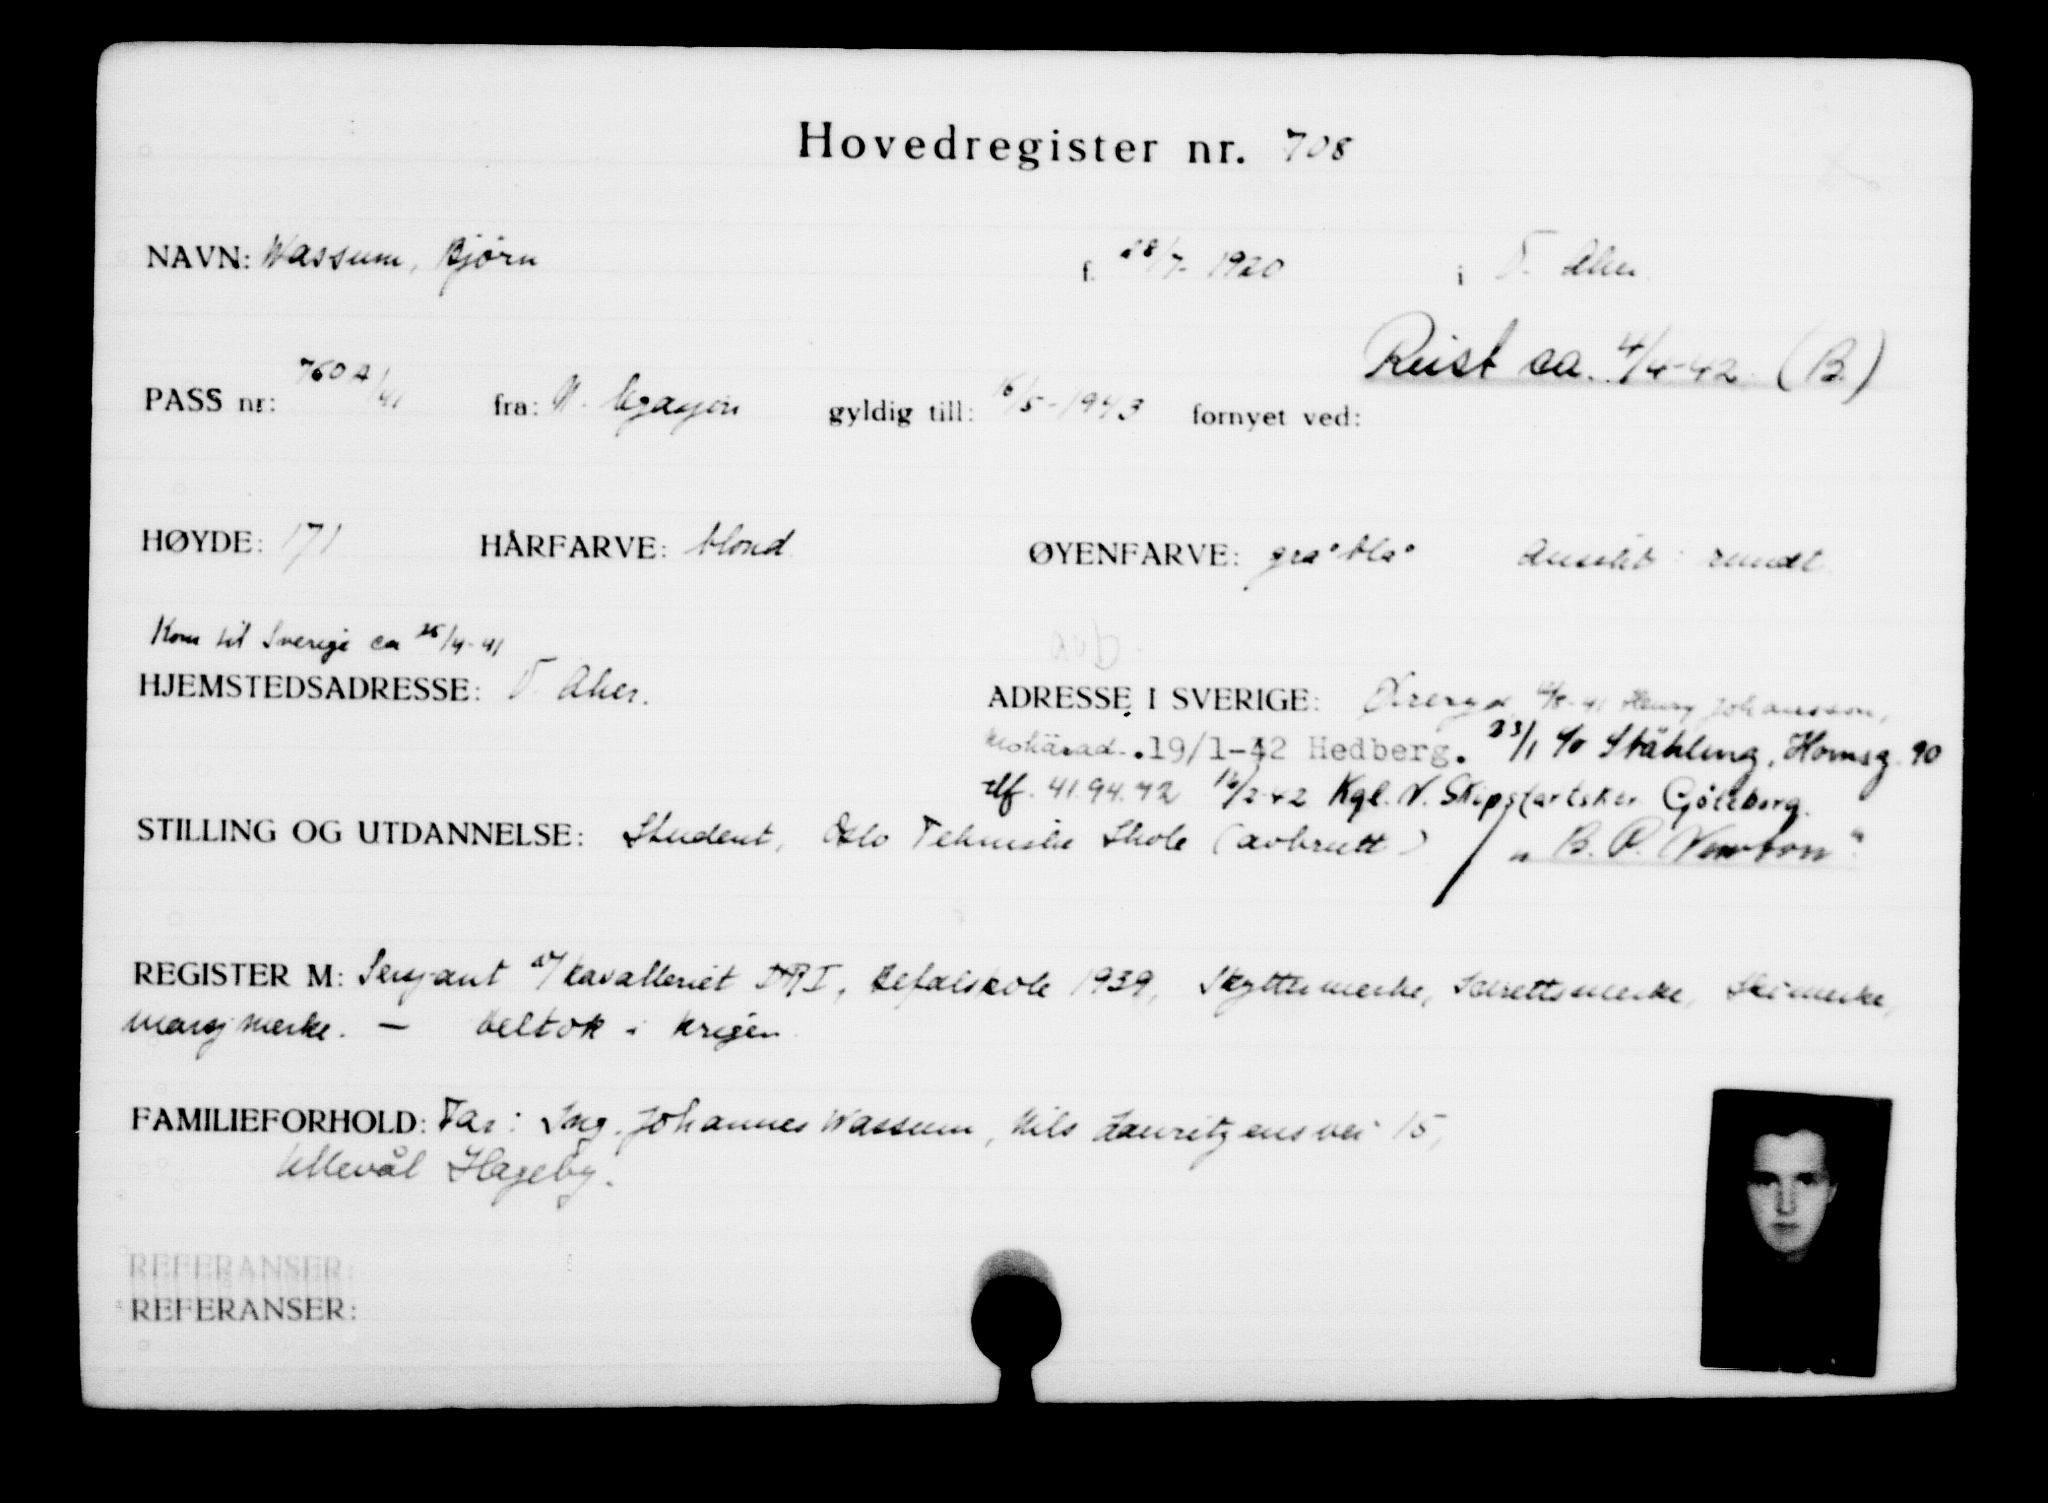 Hovedregister nr. 708
NAVN: Wassum, Bjørn f. 28/7-1920 i V. Aker.
Reist ca. 4/4-42 (B.)
PASS nr: 760A/41 fra: N. legasjon gyldig till: 15/5-1943 fornyet ved:
HØYDE: 171 HÅRFARVE: blond ØYENFARVE: gråblå Ansikt: rundt
Kom til Sverige ca 25/4-41
HJEMSTEDSADRESSE: V. Aker. ADRESSE I SVERIGE: Øreryd /8-41 Henry Johansson,
19/1-42 Hedberg. 23/1 c/o Ståhling, Hornsg. 90
tlf. 41.94.42 16/2-42 Kgl. N. Skipsfartsktr Göteborg.
STILLING OG UTDANNELSE: Student, Oslo Tekniske Skole (avbrutt) / "B. P. Newton".
REGISTER M: Sersjant av/ kavalleriet DRI, Befalskole 1939, Skyttermerke, Idrettsmerke, Skimerke,
marsjmerke. — Deltok i krigen
FAMILIEFORHOLD: Far: Ing. Johannes Wassum, Nils Lauritzens vei 15,
Ullevål Hageby.
REFERANSER:
REFERANSER: